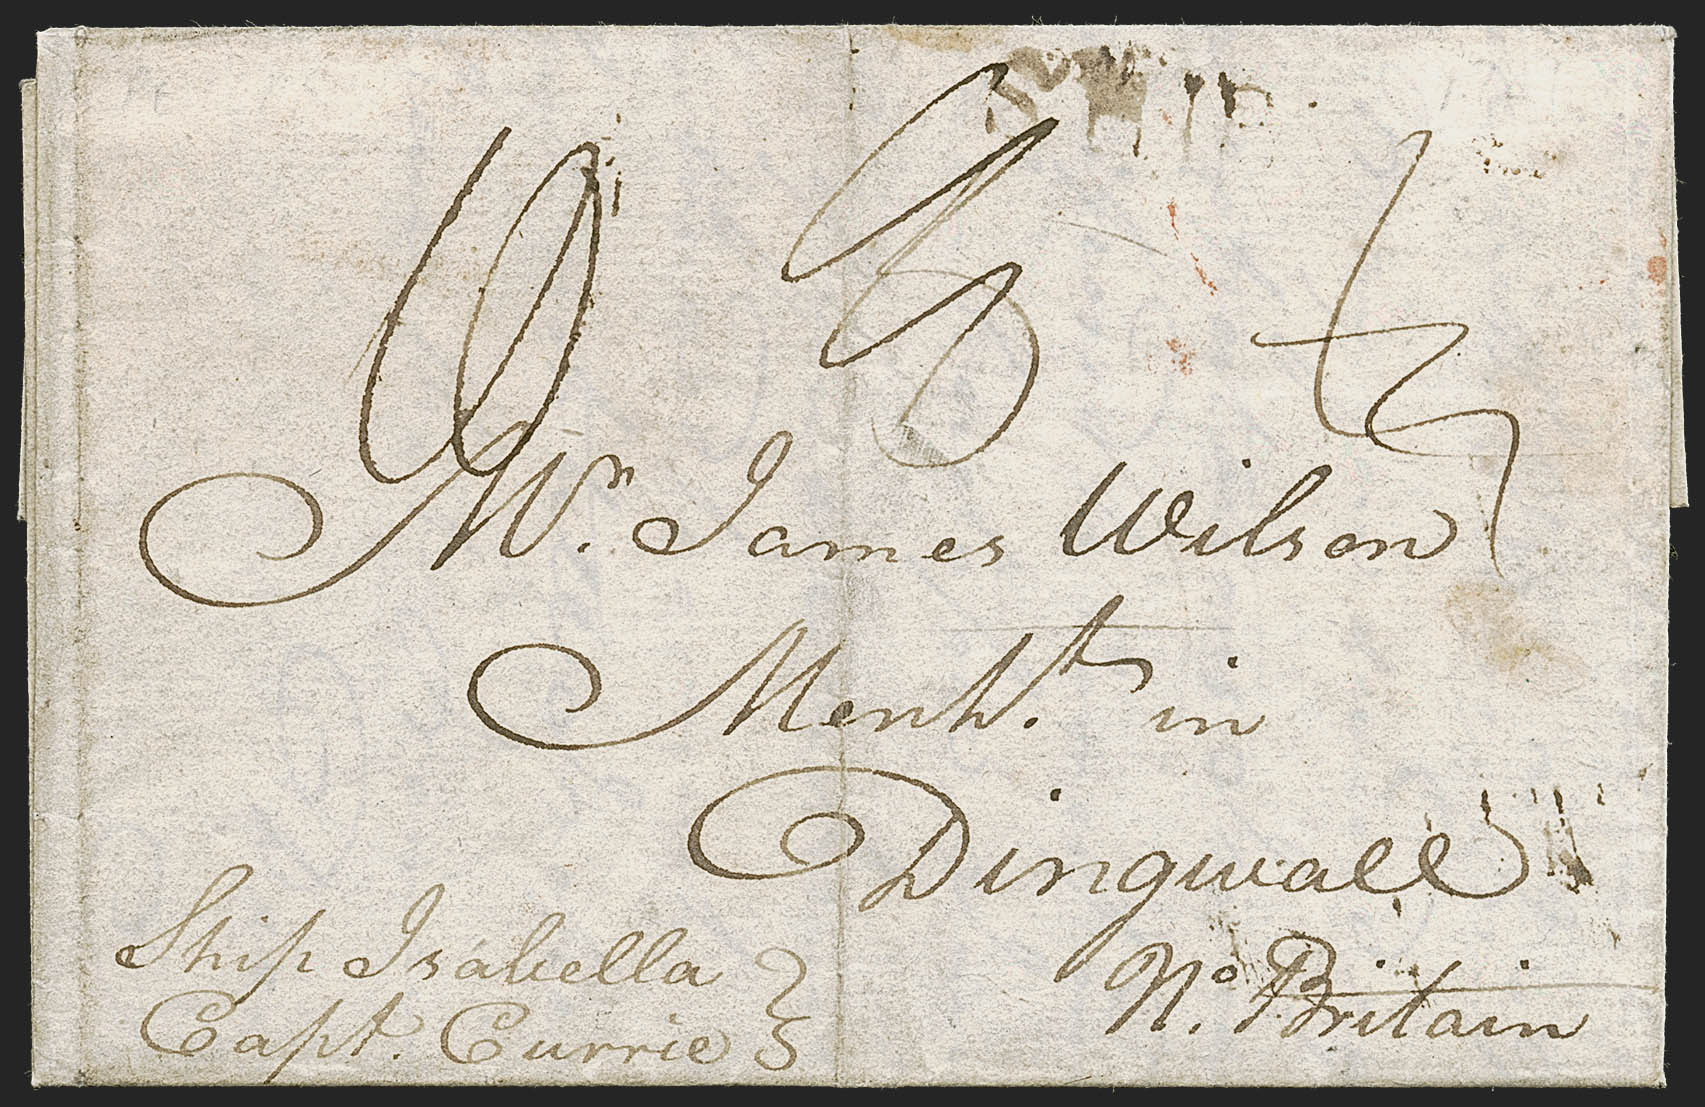 SHIP
Mr. James Wilson
Mercht. in
Dingwall
No. Britain
Ship Isabella
Capt. Currie